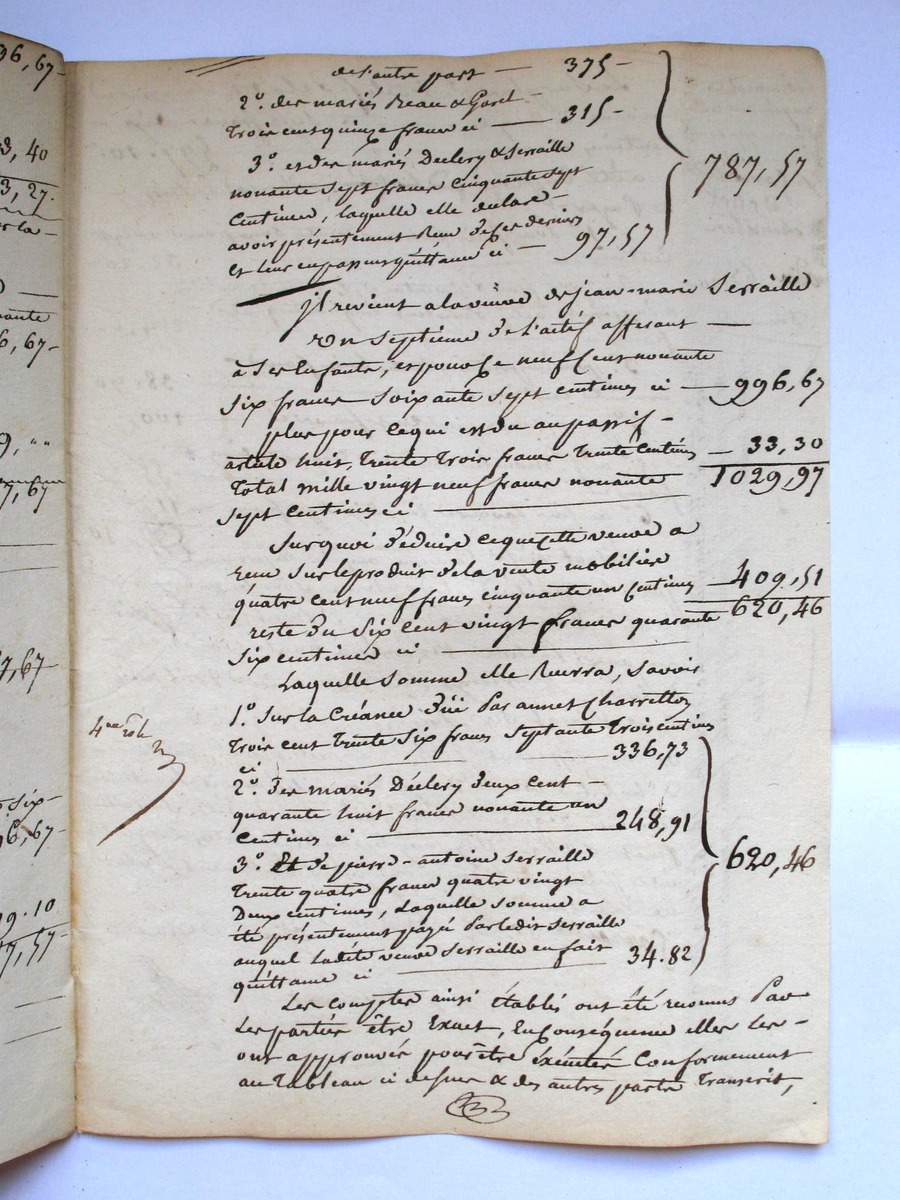 de l'autre part — 375 —
2º. des mariés Beau & Goset
trois cent quinze francs ci — 315 —
3º. et des mariés Declery & Serraille
nonante sept francs cinquante sept
centimes, laquelle elle déclare
avoir présentement Reçu de ces derniers
et leur en passe quittance ci — 97,57
787,57
Il revient a la veuve de jean-marie Serraille
un septieme de l'actif afferant —
à ses enfants, et pour ce neuf cent nonante
six francs soixante sept centimes ci — 996,67
plus pour ce qui est du au passif —
article huit, trente trois francs trente centimes — 33,30
Total mille vingt neuf francs nonante 1029,97
sept centimes ci —
Surquoi déduire ce que cette veuve a
reçu sur le produit de la vente mobilière
quatre cent neuf francs cinquante un centimes — 409,51
reste du six cent vingt francs quarante 620,46
six centimes ci —
Laquelle somme elle Recevra, savoir
1º. sur la Créance due Par annet Charretton
trois cent trente six francs septante trois centimes
ci — 336,73
2º. des mariés Déclery deux cent —
quarante huit francs nonante un
centimes ci — 248,91
3º. Et de pierre-antoine Serraille
trente quatre francs quatre vingt
deux centimes, laquelle somme a
été présentement payé Par ledit Serraille
auquel ladite veuve Serraille en fait
quittance ci — 34.82
620,46
4me
Les comptes ainsi établis ont été reconnus Par
les parties être Exact, En Conséquence elles les —
ont approuvés pour être éxécutés Conformément
au Tableau ci dessus & des autres parts Transcrit,
96,67-
3, 40
3, 27.
r la —
ante
6,67-
9, ""
7,67
7,67-
six-
96,67-
99.10
97,57-